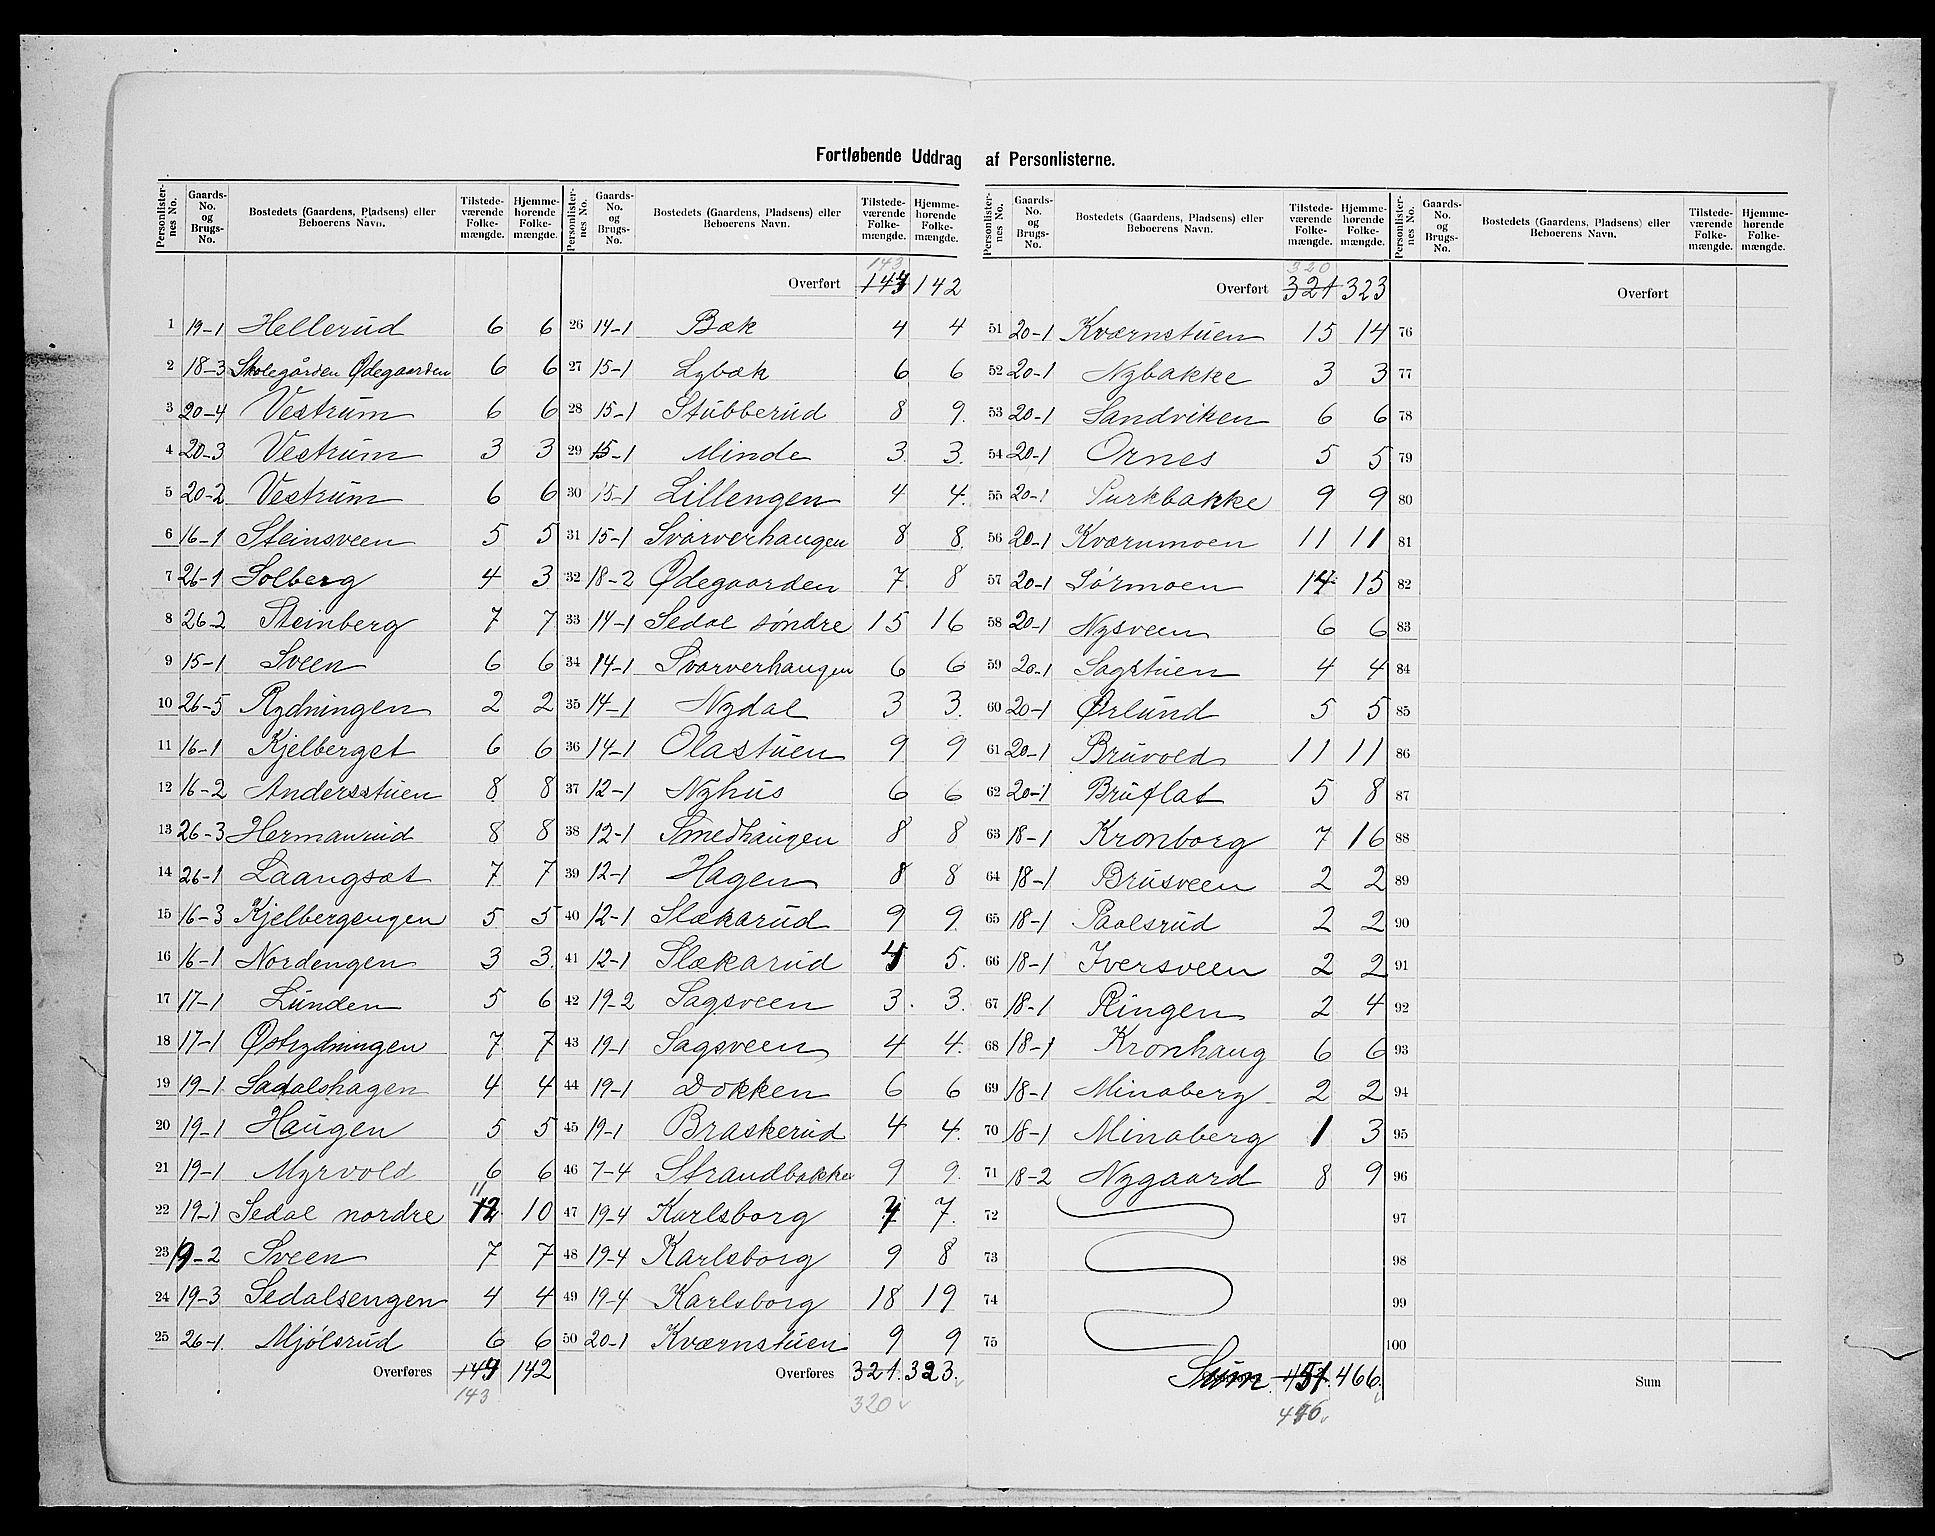 Fortløbende Uddrag af Personlisterne.
Personlister-nes No. Gaards-No. og Brugs-No. Bostedets (Gaardens, Pladsens) eller Beboerens Navn. Tilstede-værende Folke-mængde. Hjemme-hørende Folke-mængde.
1 19-1 Hellerud 6 6
2 18-3 Skolegården Ødegaarden 6 6
3 20-4 Vestrum 6 6
4 20-3 Vestrum 3 3
5 20-2 Vestrum 6 6
6 16-1 Steinsveen 5 5
7 26-1 Solberg 4 3
8 26-2 Steinberg 7 7
9 15-1 Sveen 6 6
10 26-5 Rydningen 2 2
11 16-1 Kjelberget 6 6
12 16-2 Andersstuen 8 8
13 26-3 Hermanrud 8 8
14 26-1 Laangsæt 7 7
15 16-3 Kjelbergengen 5 5
16 16-1 Nordengen 3 3.
17 17-1 Lunden 5 6
18 17-1 Østrydningen 7 7
19 19-1 Sadalshagen 4 4
20 19-1 Haugen 5 5
21 19-1 Myrvold 6 6
22 19-1 Sedal nordre 11 12 10
23 19-2 Sveen 7 7
24 19-3 Sedalsengen 4 4
25 26-1. Mjølsrud 6 6
Overføres 144 142
143
Personlister-nes No. Gaards-No. og Brugs-No. Bostedets (Gaardens, Pladsens) eller Beboerens Navn. Tilstede-værende Folke-mængde. Hjemme-hørende Folke-mængde.
143
Overført 144 142
26 14-1 Bæk 4 4
27 15-1 Lybæk 6 6
28 15-1 Stubberud 8 9.
29 15-1 Minde 3 3.
30 15-1 Lillengen 4 4.
31 15-1 Svarverhaugen 8 8.
32 18-2 Ødegaarden 7 8
33 14-1 Sedal søndre 15 16
34 14-1 Svarverhaugen 6 6
35 14-1 Nydal 3 3.
36 14-1 Olastuen 9 9
37 12-1 Nyhus 6 6
38 12-1 Smedhaugen 8 8
39 12-1 Hagen 8 8
40 12-1 Slækarud 9 9.
41 12-1 Slækarud 5.
42 19-2 Sagsveen 3. 3.
43 19-1 Sagsveen 4 4.
44 19-1 Dokken 6 6
45 19-1 Braskerud 4 4.
46 7-4 Strandbakken 9 9.
47 19-4 Karlsborg 7.
48 19-4 Karlsborg 9 8
49 19-4 Karlsborg 18 19
50 20-1 Kværnstuen 9 9
Overføres 321. 323.
320
Personlister-nes No. Gaards-No. og Brugs-No. Bostedets (Gaardens, Pladsens) eller Beboerens Navn. Tilstede-værende Folke-mængde. Hjemme-hørende Folke-mængde.
320
Overført 321 323
51 20-1 Kværnstuen 15 14
52 20-1 Nybakke 3 3
53 20-1 Sandviken 6 6
54 20-1 Ornes 5 5
55 20-1 Purkbakke 9 9
56 20-1 Kværnmoen 11 11
57 20-1 Sørmoen 14 15
58 20-1 Nysveen 6 6
59 20-1 Sagstuen 4 4
60 20-1 Ørlund 5 5
61 20-1 Bruvold 11 11
62 20-1 Bruflat 5 8
63 18-1 Kronborg 7 16
64 18-1 Brusveen 2 2
65 18-1 Paalsrud 2 2
66 18-1 Iversveen 2 2
67 18-1 Ringen 2 4
68 18-1 Kronhaug 6 6
69 18-1 Minaberg 2 2
70 18-1 Minaberg 1 3
71 18-2 Nygaard 8 9
72
73
74
75
Sum 466.
Personlister-nes No. Gaards-No. og Brugs-No. Bostedets (Gaardens, Pladsens) eller Beboerens Navn. Tilstede-værende Folke-mængde. Hjemme-hørende Folke-mængde.
Overført
76
77
78
79
80
81
82
83
84
85
86
87
88
89
90
91
92
93
94
95
96
97
98
99
100
Sum